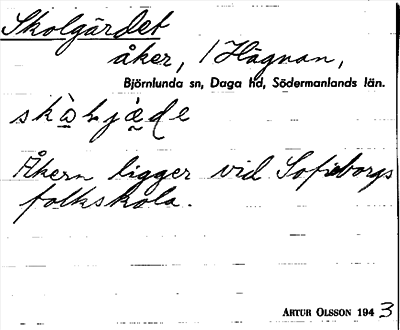 Skolgärdet
åker, / Hagnan,
Björnlunda sn, Daga hd, Södermanlands län.
Åkern ligger vid Sofieborgs
folkskola.
ARTUR OLSSON 1943